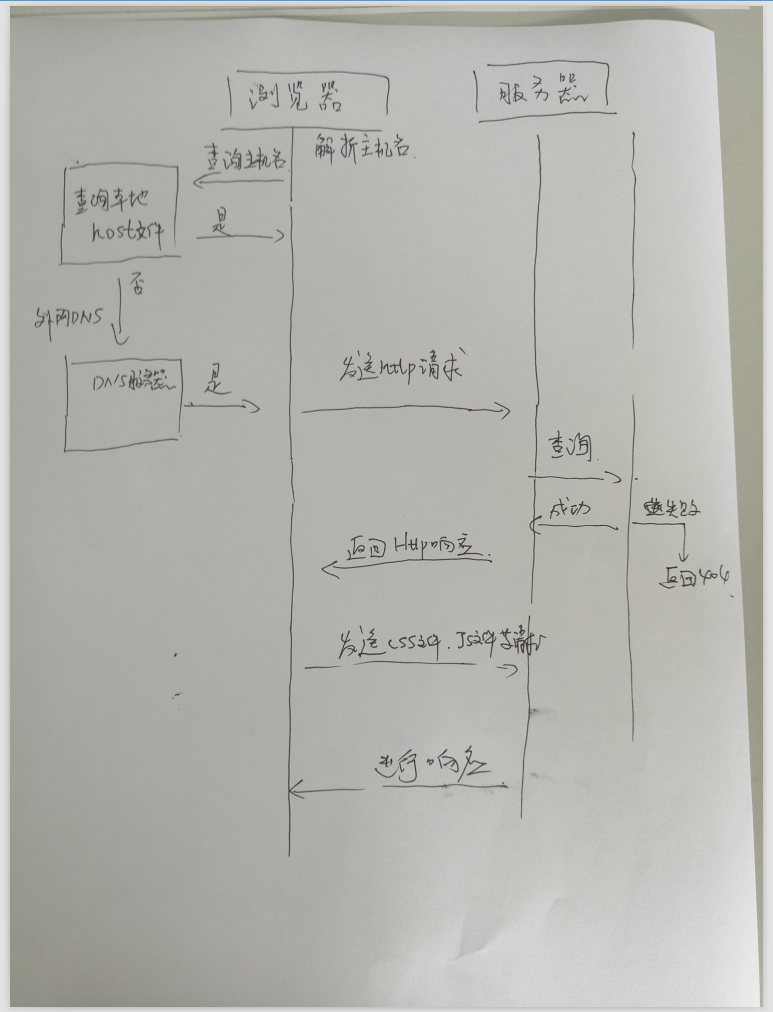 浏览器
服务器
查询主机名
解析主机名
查询本地
host文件
是
否
外网DNS
DNS服务器
是
发送Http请求
查询
成功
失败
返回404
返回Http响应
发送CSS文件、JS文件等请求
进行响应